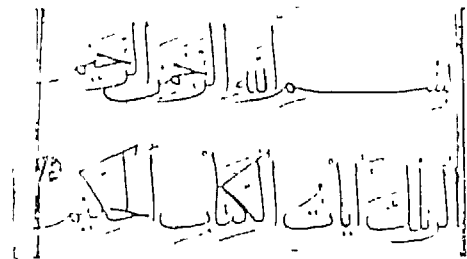 بسم الله الرحمن الرحيم
الر تلك آيات الكتاب الحكيم